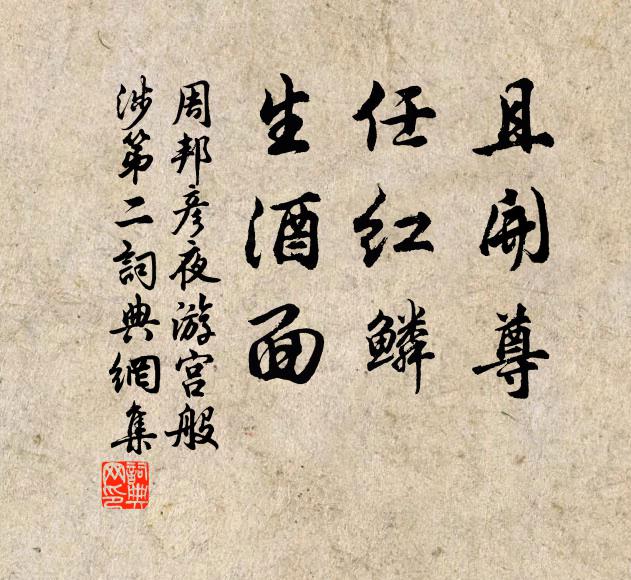 且開尊
任紅鱗
生酒面
周邦彦夜游宫般
涉第二詞典網集
詞典網印